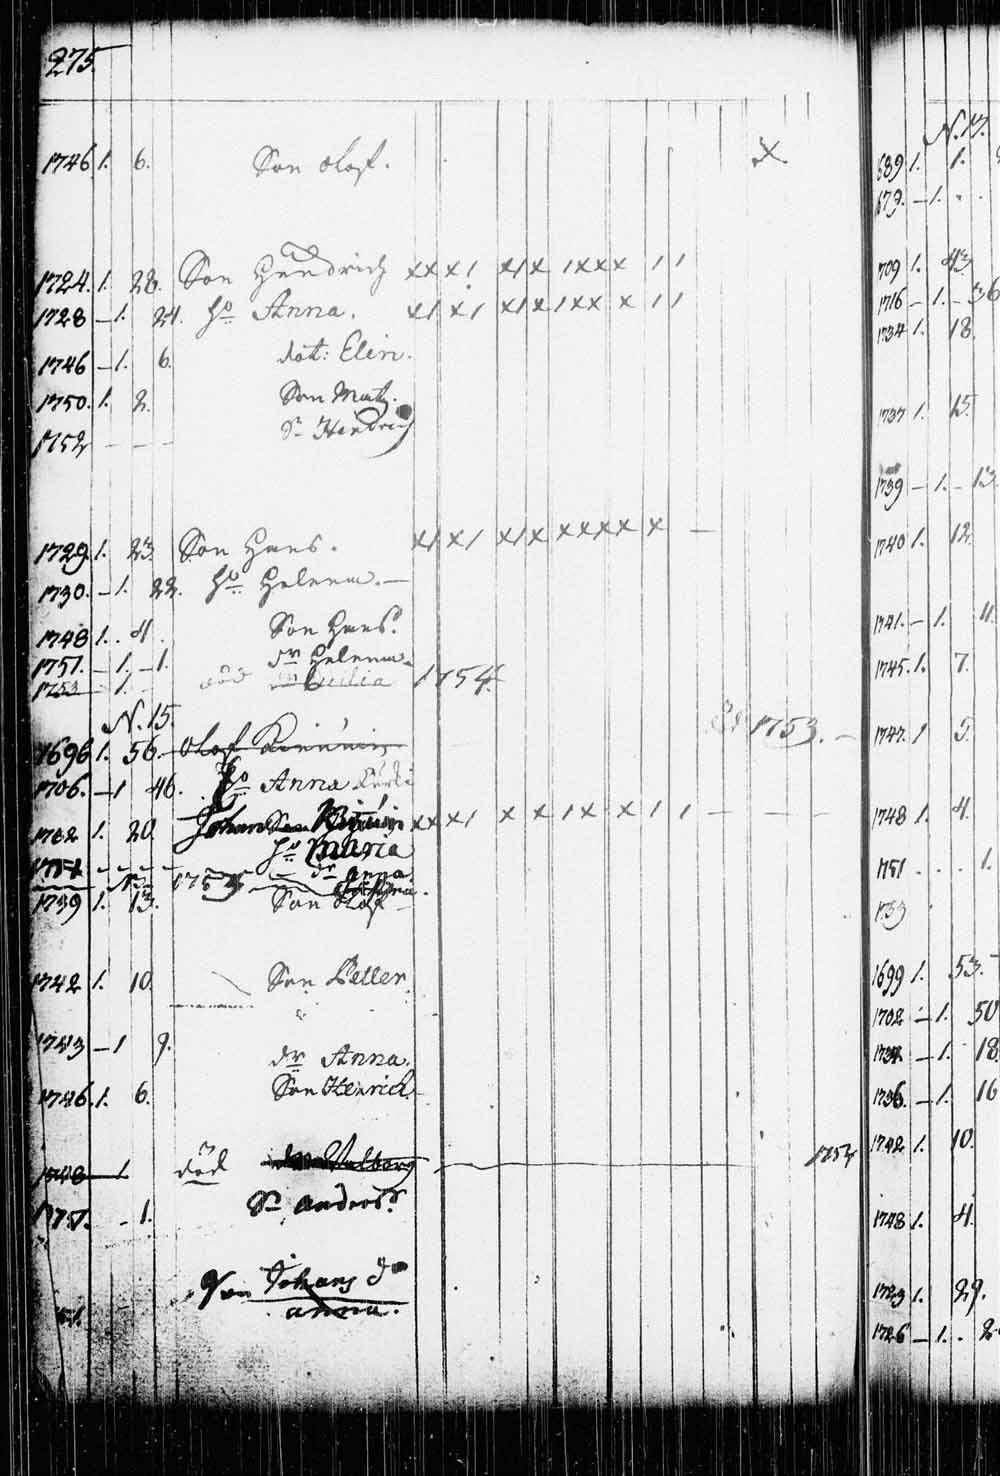 275.
1746. 1. 6. Son Olof. x
1724. 1. 28. Son Hendrich xxx1 x1x 1xxx 11
1728 – 1. 24. H:o Anna. x1 x1 x1x1xx x 11
1746 – 1. 6. dott: Elin.
1750. 1. 2. Son Matz.
1752 – – – S:n Hendrich
1729. 1. 23. Son Hans. x1x1 x1x xxxx x –
1730. – 1. 22. H:o Helena. –
1748 1. 4. Son Hans.
1751. – 1. – 1. d:r Helena.
1753 – 1. – död 1754.
N. 15.
1696 1. 56. Olof 1753. –
1706. – 1 46. H:o Anna
1732 1. 20. Johan xxx1 x x 1x x 1 1 – – –
H:o Maria
d:r Anna
1753
1739 1. 13. Son Olof –
1742 1. 10. Son Petter.
1743 – 1 9. d:r Anna.
1746. 1. 6. Son Henrich
1748 – 1 död d:r Valborg 1752
1751. – 1. S:n Anders.
Johans d:r
anna.
N. 17.
689 1. 1.
679. – 1. . .
709 1. 43
1716 – 1. – 36
1734 1. 18.
1737 1. 15.
1739 – 1. – 13.
1740 1. 12.
1741. – 1. 11.
1745. 1. 7.
1747. 1 5.
1748 1. 4.
1751 . . . 1.
1753
1699 1. 53. –
1702 – 1. 50
1734 – 1. 18.
1736. – 1. 16
1742 1. 10.
1748 1. 4.
1723 1. 29.
1726 – 1. . 2